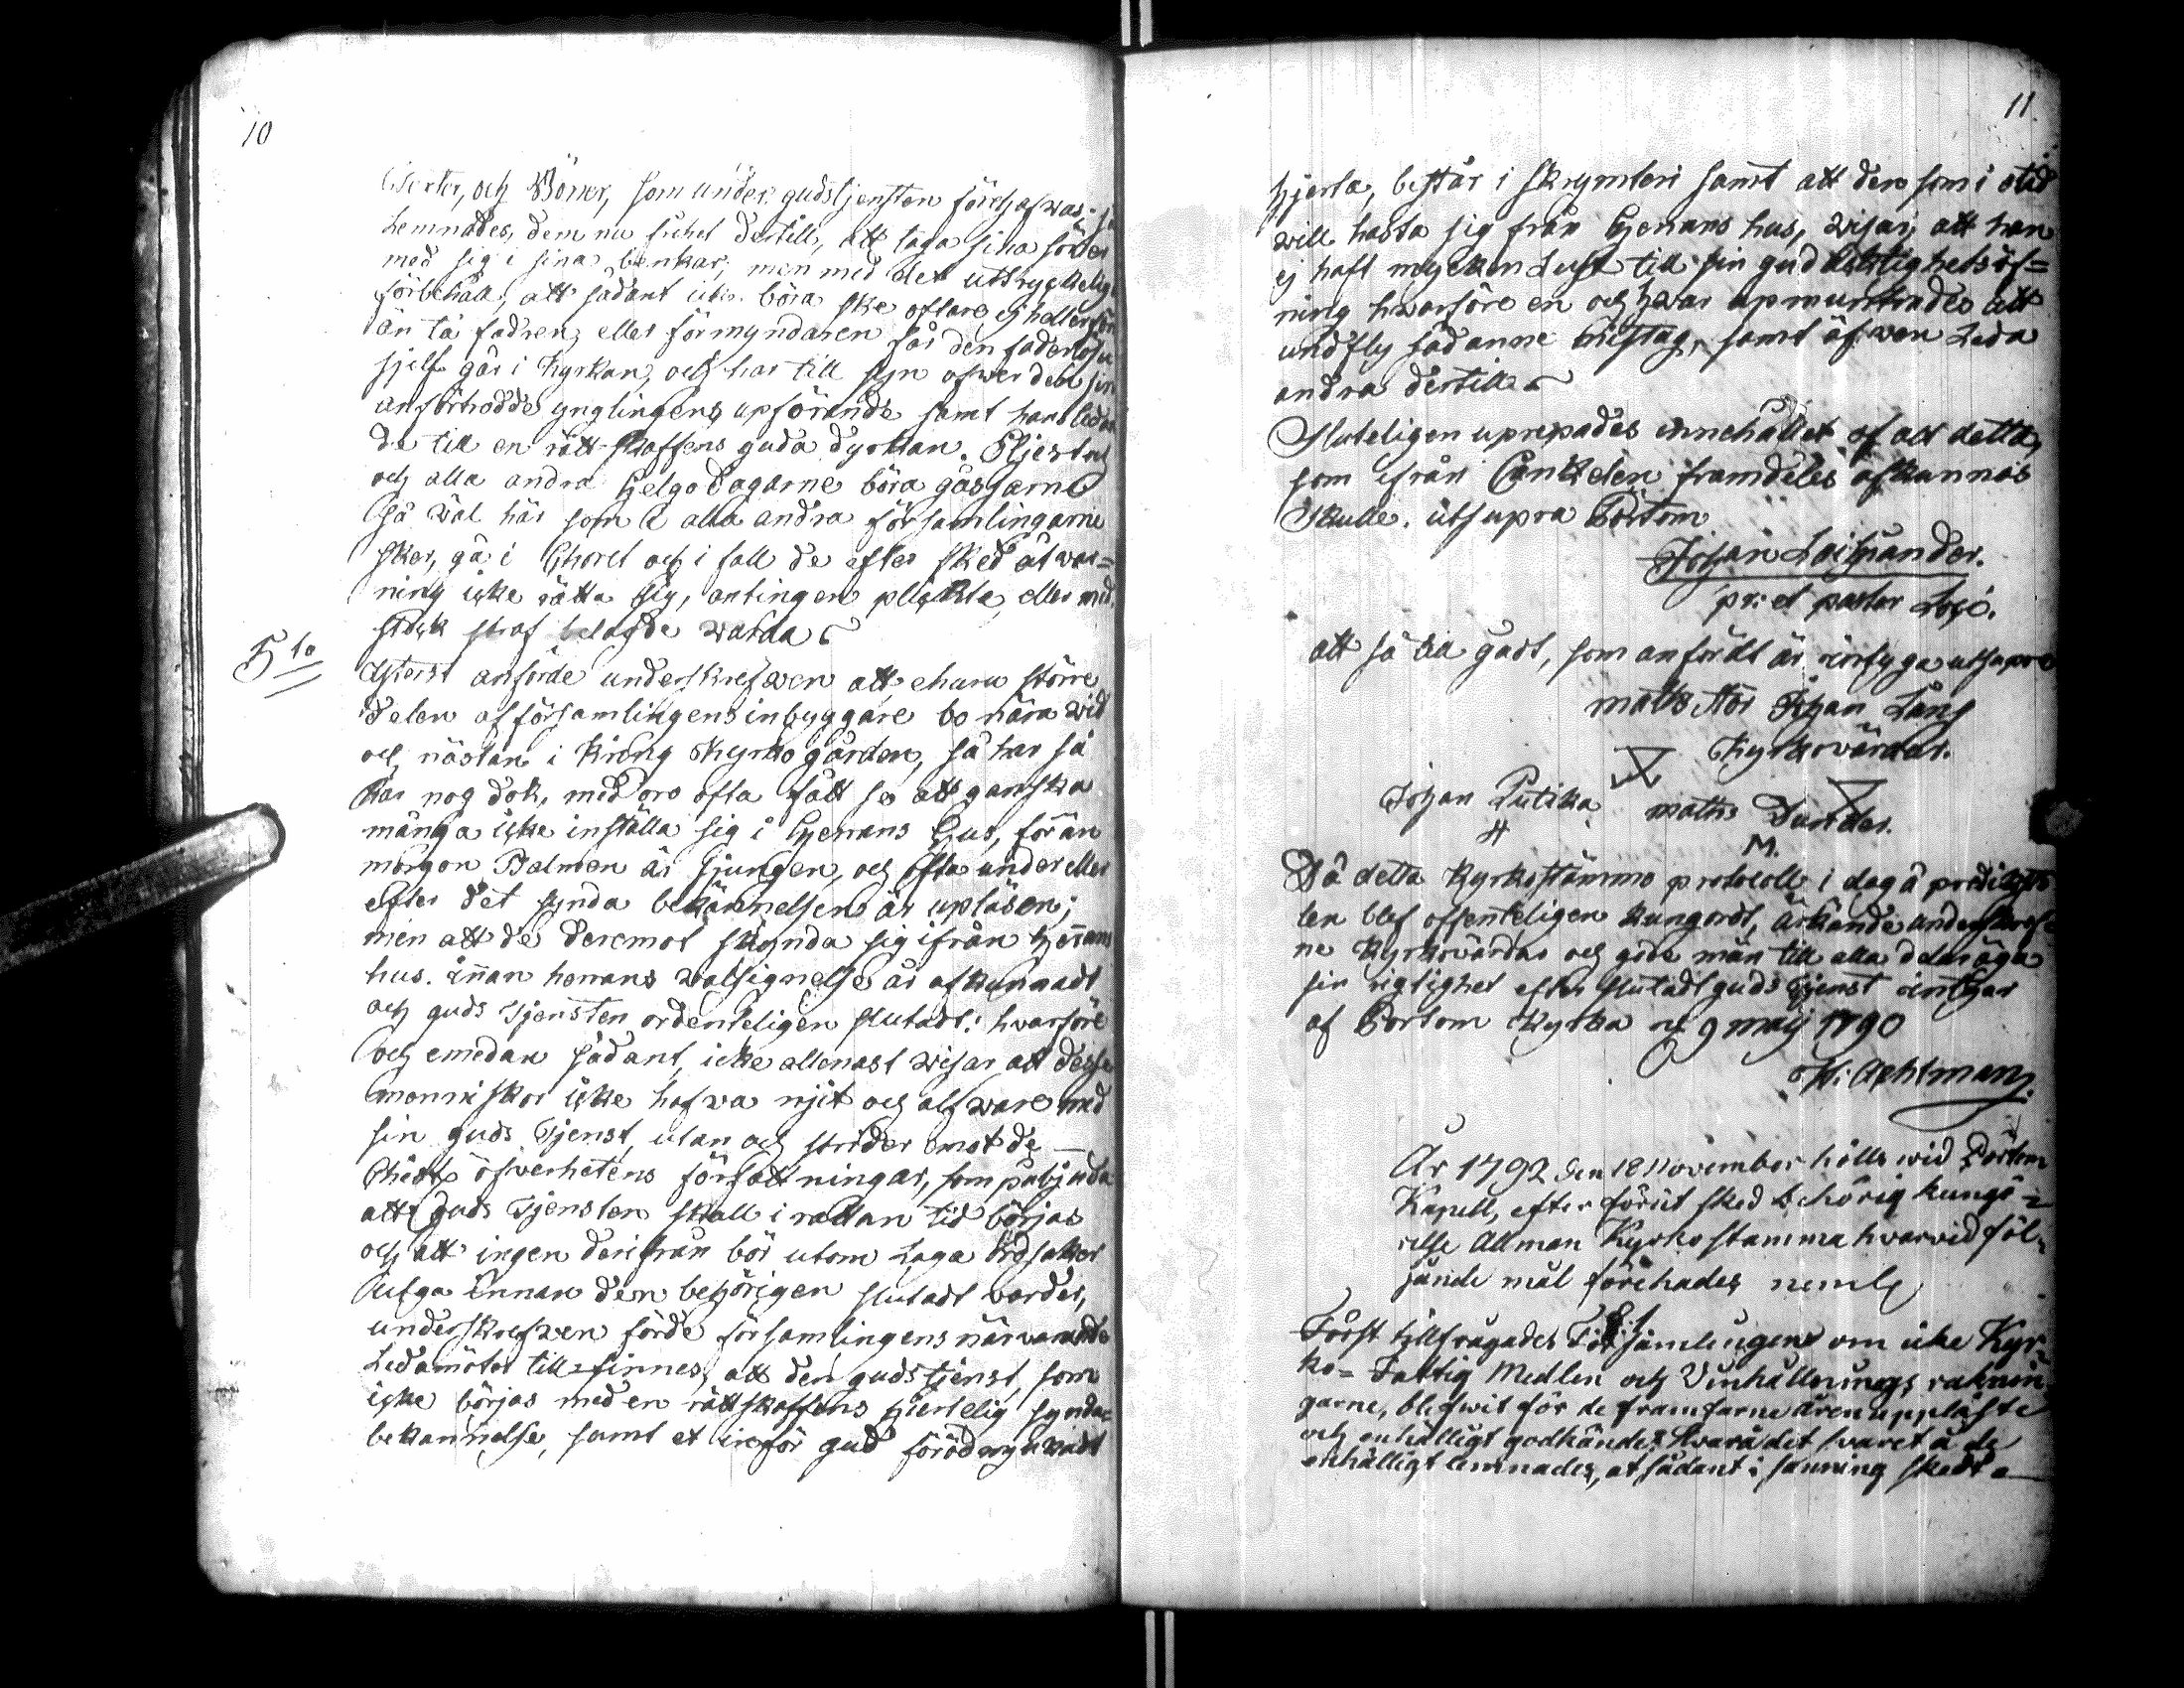 10
Texter, och Böner, som under gudstjensten förehafwas; så
Lemnades, dem nu frihet dertill, att taga sina söner
med sig i sina bänkar; men med det uttryckeliga
förbehåll, att sådant icke böra ske oftare ej heller förr
än tå fadren, eller förmyndaren får den faderlösa
sjelf går i kyrkan, och har till syn öfwer det sin
anförtrodde ynglingens upförande samt hans ledan
de till en rätt skaffens guda dyrkan.
och alla andra Helgo dagarne böra gåssarne
så wäl här som i alla andra församlingarne
sker, gå i Choret och i fall de efter sked åtwar=
ning icke rätta sig, antingen plickta eller med
stock straf belagde warda
5to
Ytterst anförde underskrefwen att ehuru större
delen af församlingens inbyggare bo nära wid
och nästan i kring kyrkogården, så har så
har nog dok, med oro ofta fått se att ganska
många icke inställa sig i Herrans Hus, förr än
morgon Psalmen är sjungen, och ofta under eller
efter det synda bekännelsen är upläsen;
men att de deremot skynda sig ifrån Herrans
hus. innan herrans wälsignelse är afkunnadt
och guds Tjensten ordenteligen slutadt: hvarföre
och emedan sådant, icke allenast wisar att desse
menniskor icke hafva nit och alfware med
sin guds Tjenst, utan och strider emot de
höga öfverhetens författningar, som påbjuda
att guds Tjensten skall i rättan tid börjas
och att ingen derifrån bör utom Laga orsaker
utga innan den behörigen slutadt warder,
underskrefwen förde församlingens närwarande
Ledamöter till sinnes, att den gudstjenst, som
icke börjas med en rättskaffens hjertelig synda=
bekännelse, samt et inför gud förödmjukadt
11
hjerta, består i skrymteri samt att den som i otid
will hasta sig från Herrans hus, wisar, att han
ej haft mycken Lust till sin gudaktighetsöf=
ning hwarföre en och hwar upmuntrades att
undfly sådanne misstag, samt äfwen Leda
andra dertill
Sluteligen uprepades innehållet af alt detta,
som ifrån Cantzelen framdeles afkunnas
skulle. ut supra Pörtom
Johan Leijander.
pr: et pastor Loci.
att så till gådt, som anfördt är, intyga ut supra
matts Johan Lång
Kyrkovärdar.
Johan Putika matts Sunden.
M.
Då detta kyrkostämmo protocoll i dag å predikosto
len blef offenteligen kungordt, ärkände underskrefe
ne kyrkovärdar och gode män till alla delar äga
sin rigtighet efter slutadt guds Tjenst intygar
af Portom kyrka d 9 maij 1790
Achtman.
År 1792 den 18 November hölls wid Pörtom
Kapell, efter förut sked behörig kungö=
relse Allman Kyrkostamma hvarvid föl=
jande mål förehades neml
§ 1
Först tillfrågades Församlingen om icke Kyr=
ko= Fattig Medlen och Vinhållnings räknin
garne, blifwit för de framfarne åren uppläste
och enhälligt godkände; Hvarå det svaret å de
enhälligt lemnades, at sådant i sanning skedt